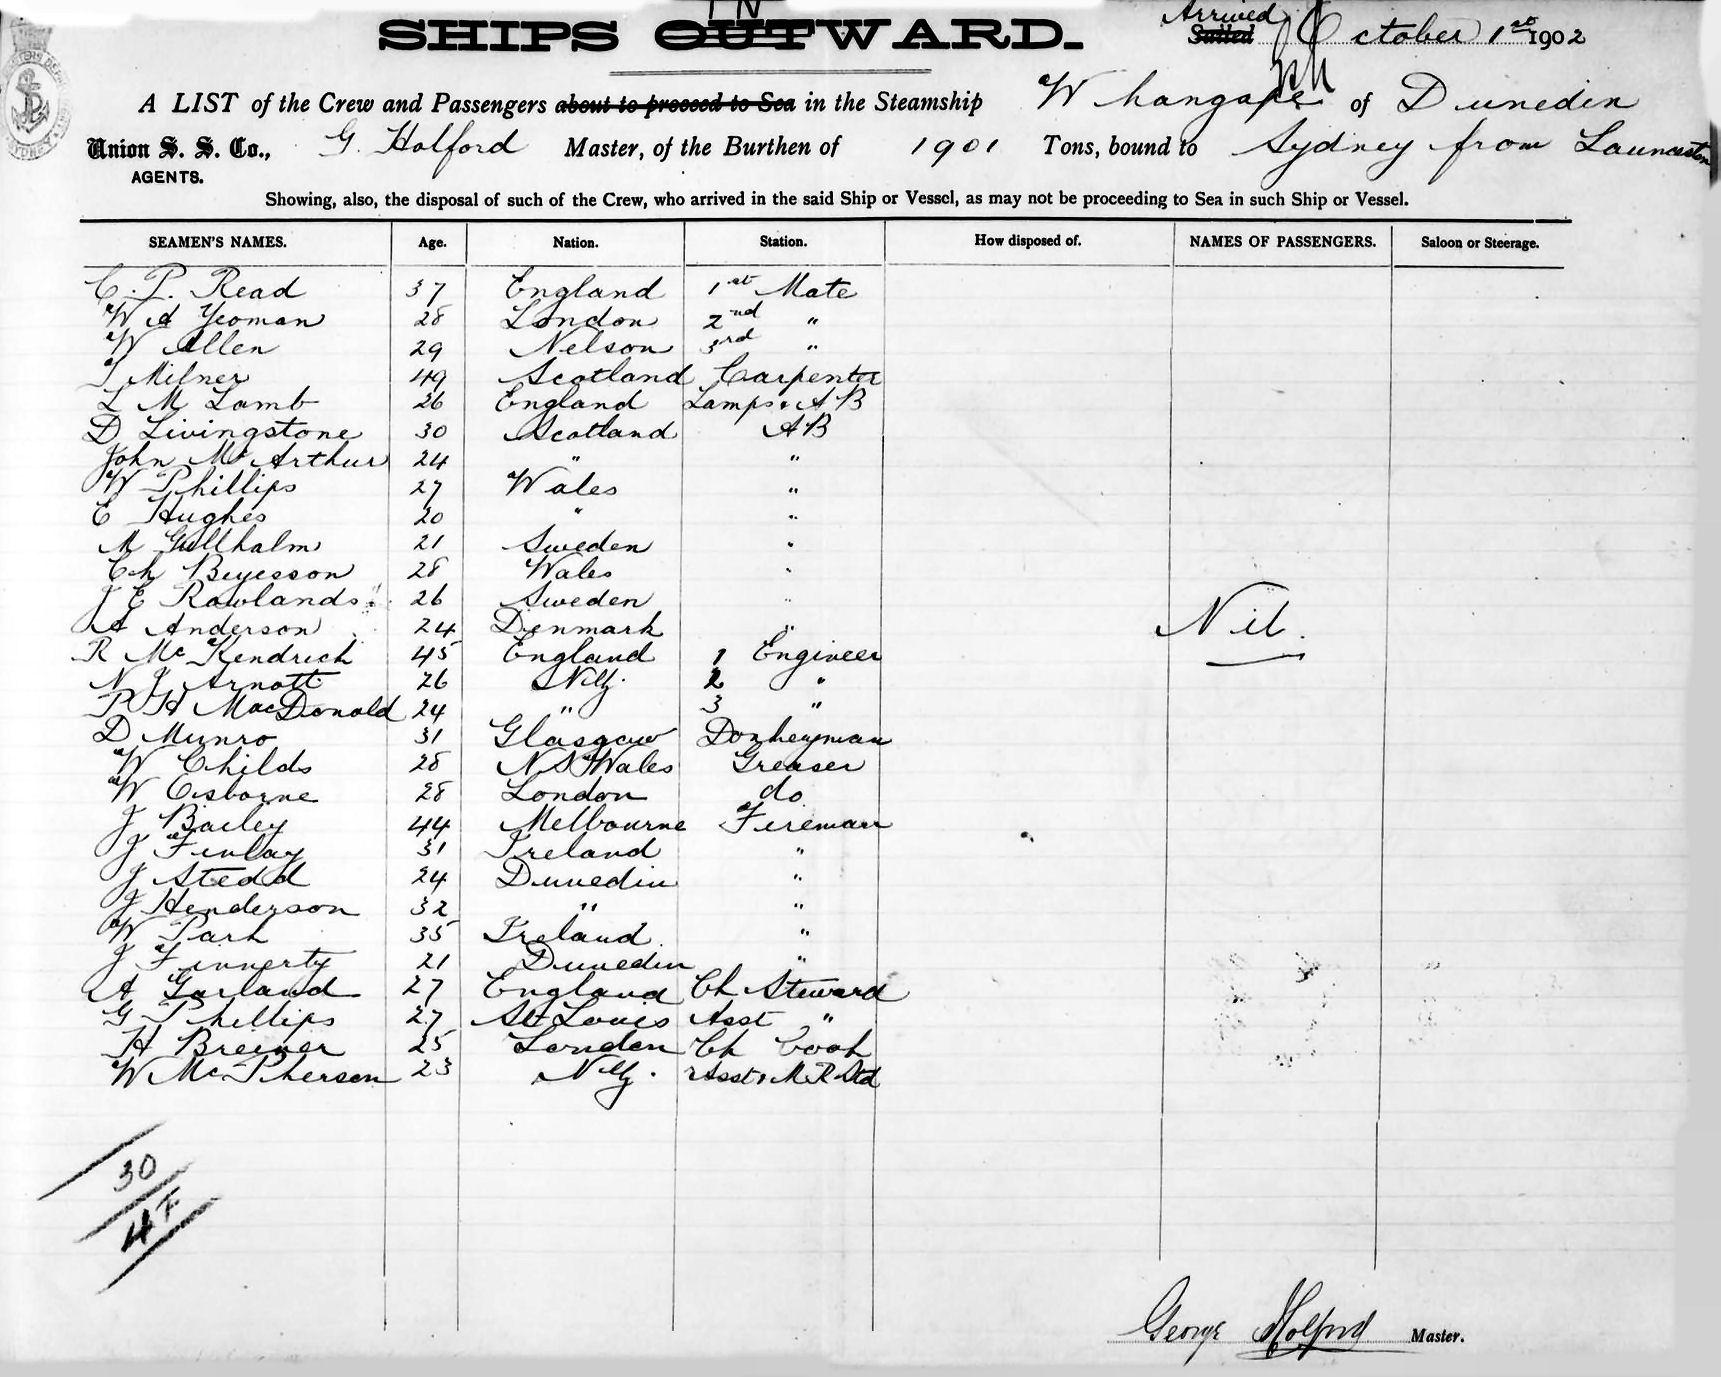 IN
SHIPS OUTWARD.
Arrived
Sailed October 1st 1902
A LIST of the Crew and Passengers about to proceed to Sea in the Steamship Whangape of Dunedin
Union S. S. Co., G. Holford Master, of the Burthen of 1901 Tons, bound to Sydney from Launceston
AGENTS.
Showing, also, the disposal of such of the Crew, who arrived in the said Ship or Vessel, as may not be proceeding to Sea in such Ship or Vessel.
SEAMEN'S NAMES. Age. Nation. Station. How disposed of. NAMES OF PASSENGERS. Saloon or Steerage.
C. P. Read 37 England 1st Mate
W A Yeoman 28 London 2nd "
W Allen 29 Nelson 3rd "
T Milner 49 Scotland Carpenter
L M Lamb 26 England Lamps & AB
D Livingstone 30 Scotland AB
John McArthur 24 " "
W Phillips 27 Wales "
E Hughes 20 " "
M Gullhalm 21 Sweden "
Ch Beyesson 28 Wales "
J E Rowlands 26 Sweden "
A Anderson 24 Denmark "
Nil.
R McKendrick 45 England 1 Engineer
N J Arnott 26 NZ. 2 "
R H MacDonald 24 " 3 "
D Munro 31 Glasgow Donkeyman
W Childs 28 N S Wales Greaser
W Osborne 28 London do
J Bailey 44 Melbourne Fireman
J Finlay 31 Ireland "
J Stedd 24 Dunedin "
J Henderson 32 " "
W Park 35 Ireland "
J Finnerty 21 Dunedin "
A Garland 27 England Ch Steward
G Phillips 27 St Louis Asst "
H Breiner 25 London Ch Cook
W McPherson 23 NZ. Asst & M R Std
30
4 F
George Holford Master.